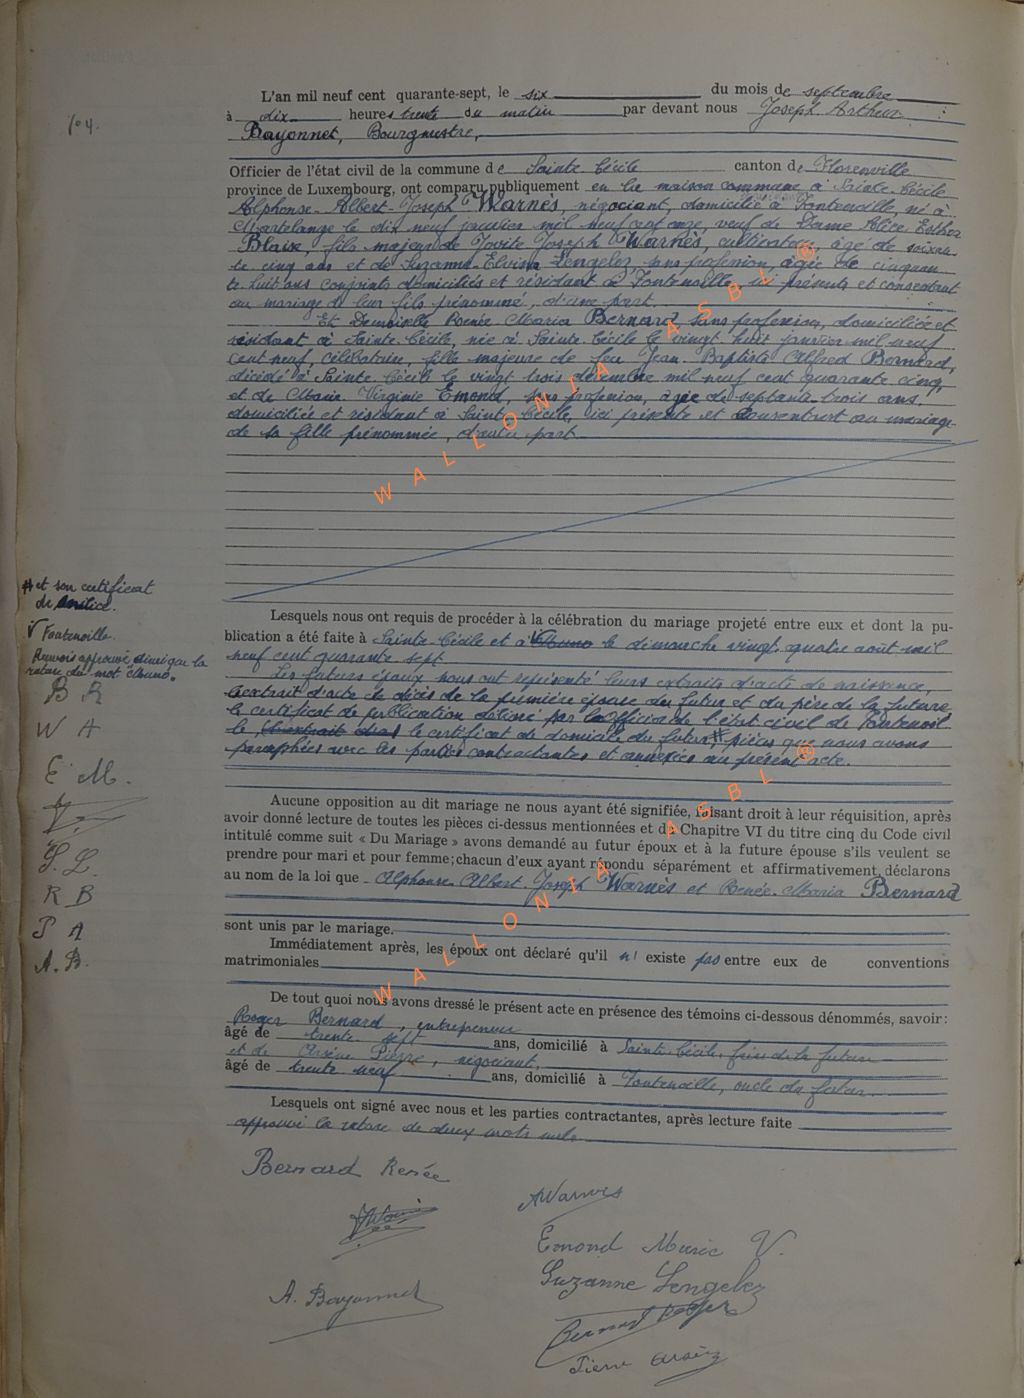 L'an mil neuf cent quarante-sept, le six du mois de septembre
à dix heures trente du matin par devant nous Joseph Arthur
Bayonnet, Bourgmestre,
Officier de l'état civil de la commune de Sainte Cécile canton de Florenville
province de Luxembourg, ont comparu publiquement en la maison commune à Sainte Cécile
Alphonse-Albert-Joseph Warnès, négociant, domicilié à Fontenoille, né à
Martelange le dix neuf janvier mil neuf cent onze, veuf de Dame Alice Esther
Blaise, fils majeur de Jovite Joseph Warnès, cultivateur, âgé de soixan-
te cinq ans et de Suzanne-Elvina Lengelez sans profession, âgée de cinquan
te huit ans conjoints domiciliés et résidant à Fontenoille, ici présents et consentant
au mariage de leur fils prénommé, d'une part.
Et Demoiselle Renée-Maria Bernard sans profession, domiciliée et
résidant à Sainte-Cécile, née à Sainte Cécile le vingt huit janvier mil neuf
cent neuf, célibataire, fille majeure de feu Jean-Baptiste Alfred Bernard,
décédé à Sainte Cécile le vingt trois décembre mil neuf cent quarante cinq,
et de Marie Virginie Emond, sans profession, âgée de septante trois ans,
domiciliée et résidant à Sainte Cécile, ici présente et consentant au mariage
de sa fille prénommée, d'autre part
Lesquels nous ont requis de procéder à la célébration du mariage projeté entre eux et dont la pu-
blication a été faite à Sainte-Cécile et à Muno le dimanche vingt-quatre août mil
neuf cent quarante sept
Les futurs époux nous ont représenté leurs extraits d'acte de naissance,
l'extrait d'acte de décès de la première épouse du futur et du père de la future
le certificat de publication délivré par l'officier de l'état civil de Fontenoil
le le certificat de domicile du futur, # pièces que nous avons
paraphées avec les parties contractantes et annexées au présent acte.
Aucune opposition au dit mariage ne nous ayant été signifiée, faisant droit à leur réquisition, après
avoir donné lecture de toutes les pièces ci-dessus mentionnées et du Chapitre VI du titre cinq du Code civil
intitulé comme suit « Du Mariage » avons demandé au futur époux et à la future épouse s'ils veulent se
prendre pour mari et pour femme; chacun d'eux ayant répondu séparément et affirmativement, déclarons
au nom de la loi que Alphonse-Albert-Joseph Warnès et Renée-Maria Bernard
sont unis par le mariage.
Immédiatement après, les époux ont déclaré qu'il n' existe pas entre eux de conventions
matrimoniales
De tout quoi nous avons dressé le présent acte en présence des témoins ci-dessous dénommés, savoir:
Roger Bernard, entrepreneur
âgé de trente sept ans, domicilié à Sainte Cécile, frère de la future
et de Arsène Pierre, négociant,
âgé de trente neuf ans, domicilié à Fontenoille, oncle du futur.
Lesquels ont signé avec nous et les parties contractantes, après lecture faite
approuvé la rature de deux mots nuls
Bernard Renée
AWarnès
Emond Marie V.
Suzanne Lengelez
A. Bayonnet
Bernard Roger
Pierre Arsène
# et son certificat
de milice.
Fontenoille.
Renvois approuvé ainsi que la
rature du mot "Muno".
B R
W A
E M.
S. L.
R B
P A
A. B.
WALLONIA ASBL ®
WALLONIA ASBL ®